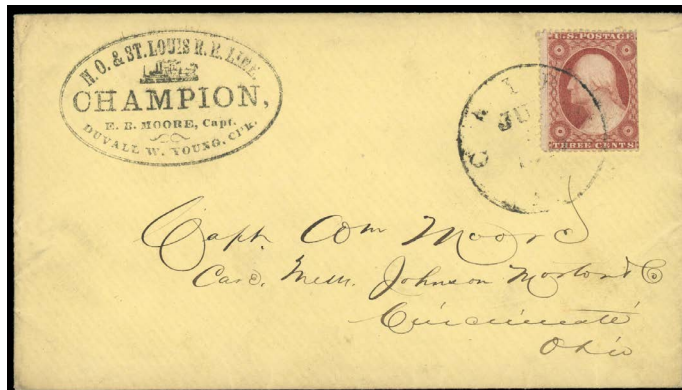 N. O. & ST. LOUIS R. R. LINE.
CHAMPION,
E. B. MOORE, Capt.
DUVALL W. YOUNG, Cl'k.
U.S. POSTAGE
THREE CENTS
CAI
JU
Capt. Com Moore
Care. Messr. Johnson Morton & Co
Cincinnati
Ohio